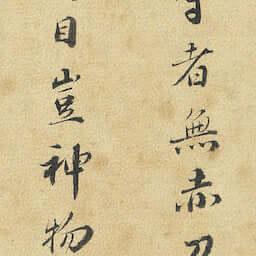 者無赤
目豈神物